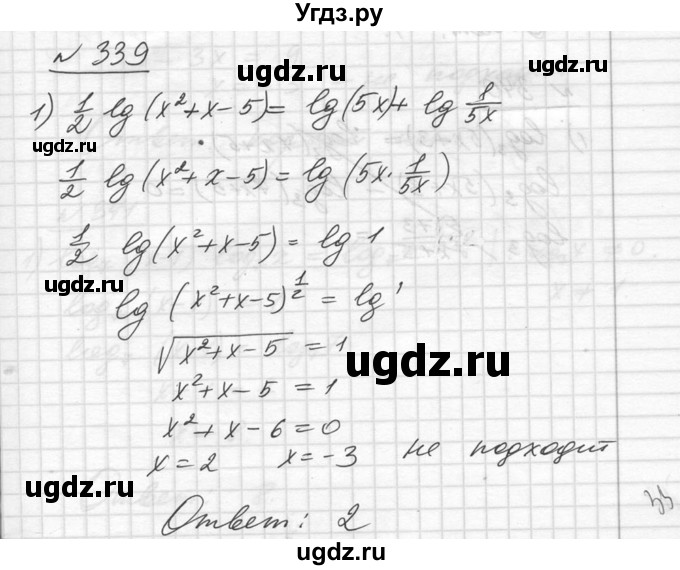 Угдз.ру
№ 339
ugdz.ru ugdz.ru
1) 1/2 lg (x²+x-5) = lg (5x) + lg 1/5x
1/2 lg (x²+x-5) = lg (5x · 1/5x)
1/2 lg (x²+x-5) = lg 1
ugdz.ru ugdz.ru
lg (x²+x-5)^1/2 = lg 1
√x²+x-5 = 1
ugdz.ru
x²+x-5 = 1
x²+x-6=0
x=2 x=-3 не подходит
ugdz.ru
Ответ: 2
ugdz.ru
ugdz.ru